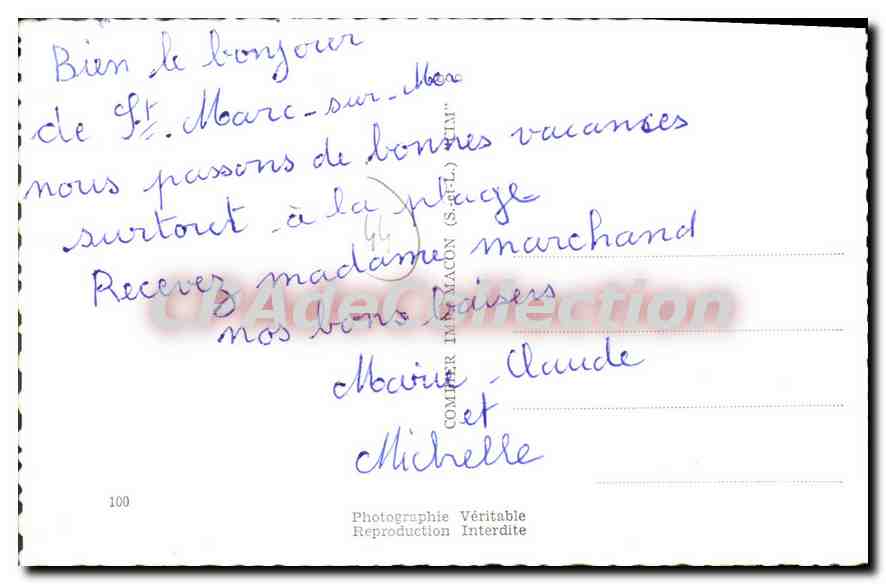 Bien le bonjour
de St. Marc-sur-Mer
nous passons de bonnes vacances
surtout à la plage
44
Recevez madame marchand
nos bons baisers
Marie-Claude
et
Michelle
COMBIER IMP. MACON (S.-et-L.) "CIM"
CPAdeCollection
100
Photographie Véritable
Reproduction Interdite